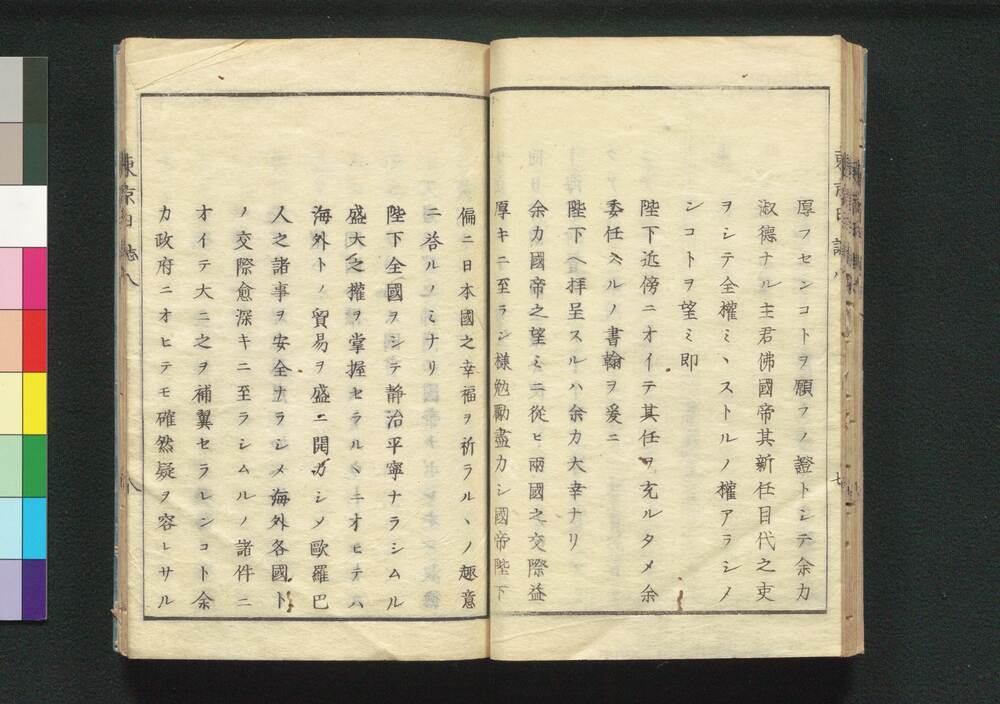 厚フセンコトヲ願フノ證トシテ余カ
淑德ナル主君佛國帝其新任目代之吏
ヲシテ全權ミヽストルノ權アラシメ
ンコトヲ望ミ即
陛下近傍ニオイテ其任ヲ充ルタメ余
委任スルノ書翰ヲ爰ニ
陛下ヘ拝呈スルハ余カ大幸ナリ
余カ國帝之望ミニ從ヒ兩國之交際益
厚キニ至ラン様勉勵盡力シ國帝陛下
偏ニ日本國之幸福ヲ祈ラルヽノ趣意
ニ荅ルノミナリ
陛下全國ヲシテ静治平寧ナラシムル
盛大之權ヲ掌握セラルヽニオヒテハ
海外トノ貿易ヲ盛ニ開カシメ歐羅巴
人之諸事ヲ安全ナラシメ海外各國ト
ノ交際愈深キニ至ラシムルノ諸件ニ
オイテ大ニ之ヲ補翼セラレンコト余
カ政府ニオヒテモ確然疑ヲ容レサル
東京日誌八
八